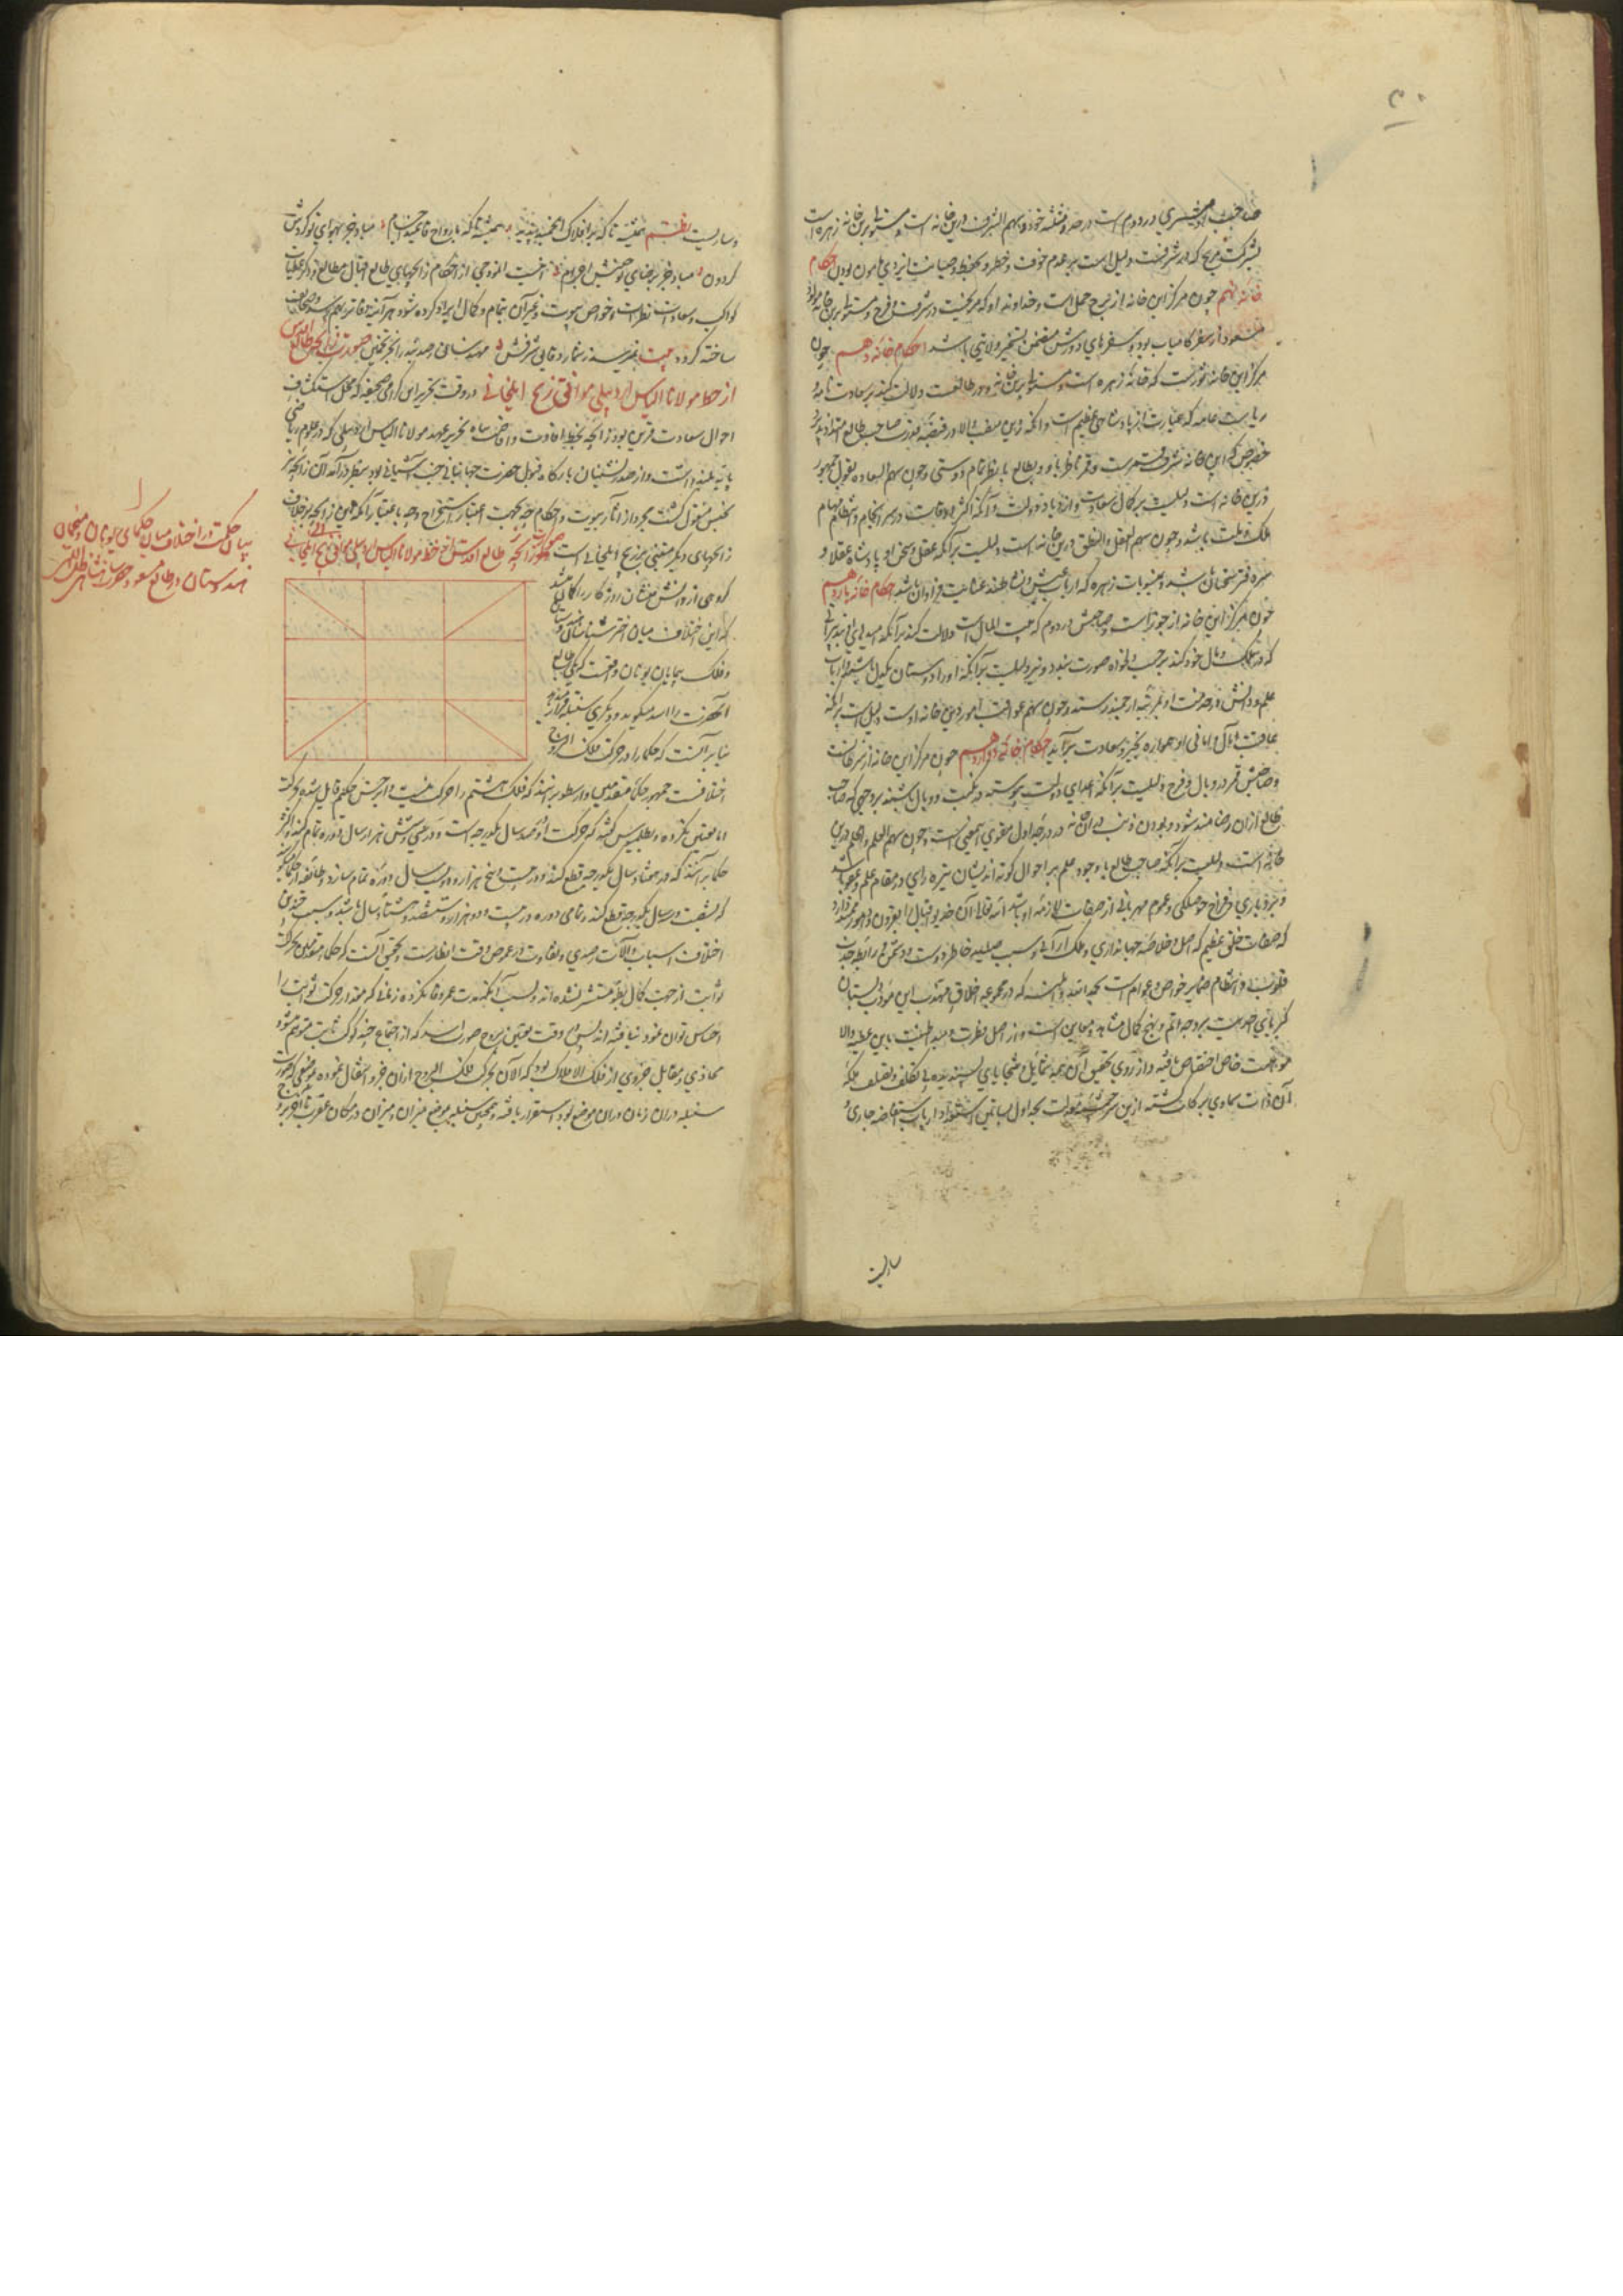 صاحبش مشتری در دوم است در حد و مثلثه خود و سهم الشرف درین خانه است و مستولی برین خانه زهره است
بشرکت مریخ که در شرفست دلیل است بر عدم خوف و خطر و بحفظ و صیانت ایزدی مامون بودن احکام
خانه نهم چون مرکز این خانه از برج حمل است و خداوند او که مریخست در شرف و فرح و مستولی برین خانه مولود
مسعود از سفر کامیاب بود و سفرهای دورش متضمن تسخیر ولایتی باشد احکام خانه دهم چون
مرکز این خانه ثورست که خانه زهره است و مستولی برین خانه و در طالعست دلالت کند بر سعادت تامه
ریاست عامه که عبارت از پادشاهی عظیم است و آنکه این منصب والا در قبضه قدرت صاحب طالع امتداد پذیرد
خصوص که این خانه شرف قمرست و قمر ناظر باو و بطالع بنظر تمام دوستی و چون سهم السعاده بقول جمهور
درین خانه است دلیلست بر کمال سعادت و ازدیاد دولت و آنکه اکثر اوقات در سرانجام و انتظام مهام
ملک و ملت باشد و چون سهم العقل و النطق درین خانه است دلیلست بر آنکه عقل و سخن او پادشاه عقلا و
سر دفتر سخنان باشد و منسوبات زهره که ارباب عیش و نشاطند عنایت فراوان باشد احکام خانه یازدهم
چون مرکز این خانه از جوزاست و صاحبش در دوم که بیت المال است دلالت کند بر آنکه امیدهای پذیرای
که در ممالک و مال خود کند بر حسب دلخواه صورت بندد و نیز دلیلست بر آنکه او را دوستان یکدل باشد و ارباب
علم و دانش در خدمت او بمرتبه ارجمند رسند و چون سهم عواقب امور درین خانه اوست دلیل است بر آنکه
عاقبت آمال و امانی او همواره بخیر و سعادت برآید احکام خانه دوازدهم چون مرکز این خانه از سرطانست
و صاحبش قمر در وبال و فرح دلیلست بر آنکه اعدای دولت پیوسته در نکبت و وبال باشند بروجهی که صاحب
طالع ازان رضامند شود و بودن ذنب درین خانه در درجه اول مقوی این معنی است و چون سهم العلم و الحلم درین
خانه است دلیلست بر آنکه صاحب طالع با وجود علم بر احوال کوته اندیشان تیره رای در مقام علم و عفو باشد
و بردباری و فراخ حوصلگی و عموم مهربانی از صفات لازمه او باشد الله تعالی آن خدیو اقبال را بقرون و دهور ممتد دارد
که صفات خلق عظیم که اصل و خلاصه جهانداری و ملک آرائی و سبب جمعیت خاطر دوست و دشمن و رابطه جذب
قلوب و انتظام ضمایر خواص و عوام است بحمد الله و المنه که در مجموعه اخلاق مهذب این مؤدب دبستان
کبریای احدیت بروجه اتم و نهج کمال مشاهد و معاین است و از اصل فطرت و مبدا طینت باین عطیه والا
موهبت خاص اختصاص یافته و از روی تحقیق این همه شمایل و سجایای پسندیده بی تکلف و تصلف ملکه
آن ذات سماوی برکات گشته ازین سرچشمه عدالت بجداول بساتین استعداد ارباب استفاضه جاری و
ساریست
وساریست نظم همیشه تا که بر افلاک انجمند بپای همیشه تا که بارواح قائمند اجسام مباد جز بهوای تو گردش
گردون مباد جز برضای تو جنبش اجرام اینست انموذجی از احکام زایچهای طالع اقبال مطالع و اگر عطیات
کواکب و سعادت نظرات و خواص بیوت و غیر آن بتمام و کمال ایراد کرده شود هر آینه دفاتر بهم رسد و صحایف
ساخته گردد بیت نمیرسد بشمار دقایق شرفش مهندسانی رصدبند را نجوم تخمین صورت زایچه طالع اقدس
از خط مولانا الیاس اردبیلی موافق زیج ایلخانی در وقت تحریر این گرامی صحیفه که محل استکشاف
احوال سعادت قرین بود زایچه بخط افادت و افاضت پناه نحریر عهد مولانا الیاس اردبیلی که در علوم ریاضی
پایه بلند داشت و از صدرنشینان بارگاه قبول حضرت جهانبانی جنت آشیانی بود بنظر در آمد آن زایچه نیز
بجنس منقول گشت مجرد از آثار بیوت و احکام چه بجهت اعتبار استخراج و چه باعتبار آنکه این زایچه بر خلاف
زایچهای دیگر مبتنی بر زیج ایلخانی است صورت زایچه طالع اقدس از خط مولانا الیاس اردبیلی موافق زیج ایلخانی
گروهی از دانش منشان روزگار را گمان شد
که این اختلاف میان اختر شناسان
و فلک پیمایان یونان واقعست که یکی طالع
آنحضرت را اسد میگوید و دیگری سنبله قرار میدهد
بنا بر آنست که حکما را در حرکت فلک البروج
اختلافست جمهور حکمای متقدمین و ارسطو بر آنند که فلک هشتم را حرکت نیست و ابرخس حکیم قایل شده بحرکت
اما تعیین نکرده و بطلمیوس گفته که حرکت او صد سال یکدرجه است و در سی و شش هزار سال دوره تمام کند و اکثر
حکما بر آنند که در هفتاد سال یکدرجه قطع کند و در بیست و پنج هزار و دویست سال دوره تمام سازد و طایفه از حکما گویند
که بشصت و سه سال یکدرجه قطع کند و تمامی دوره در بیست و دو هزار و ششصد و هشتاد سال باشد و سبب چندین
اختلاف اسباب و آلات رصدی و تفاوت در عروض دقت انظارست و تحقیق آنست که حکمای متقدمین بر حرکت
ثوابت از جهت کمال بطو مستشعر نشده اند و لیس آنکه مدت عمر وفا نکرده زمانی که مقدار حرکت ثوابت را
احساس توان نمود نیافته اند پس در وقت تعیین بروج صورت اسد که از اجتماع چند کوکب ثابت متوهم میشود
محاذی و مقابل جزوی از فلک الافلاک بود که الآن بحرکت فلک البروج ازان جزو انتقال نموده بموضعی که صورت
سنبله دران زمان دران موضع بود استقرار یافته و همچنین سنبله بموضع میزان و میزان در مکان عقرب تا آخر بروج
بیان حکمت در اختلاف میان حکمای یونان و منجمان
هندوستان در طالع مسعود حضرت شاهنشاهی ظل اللهی